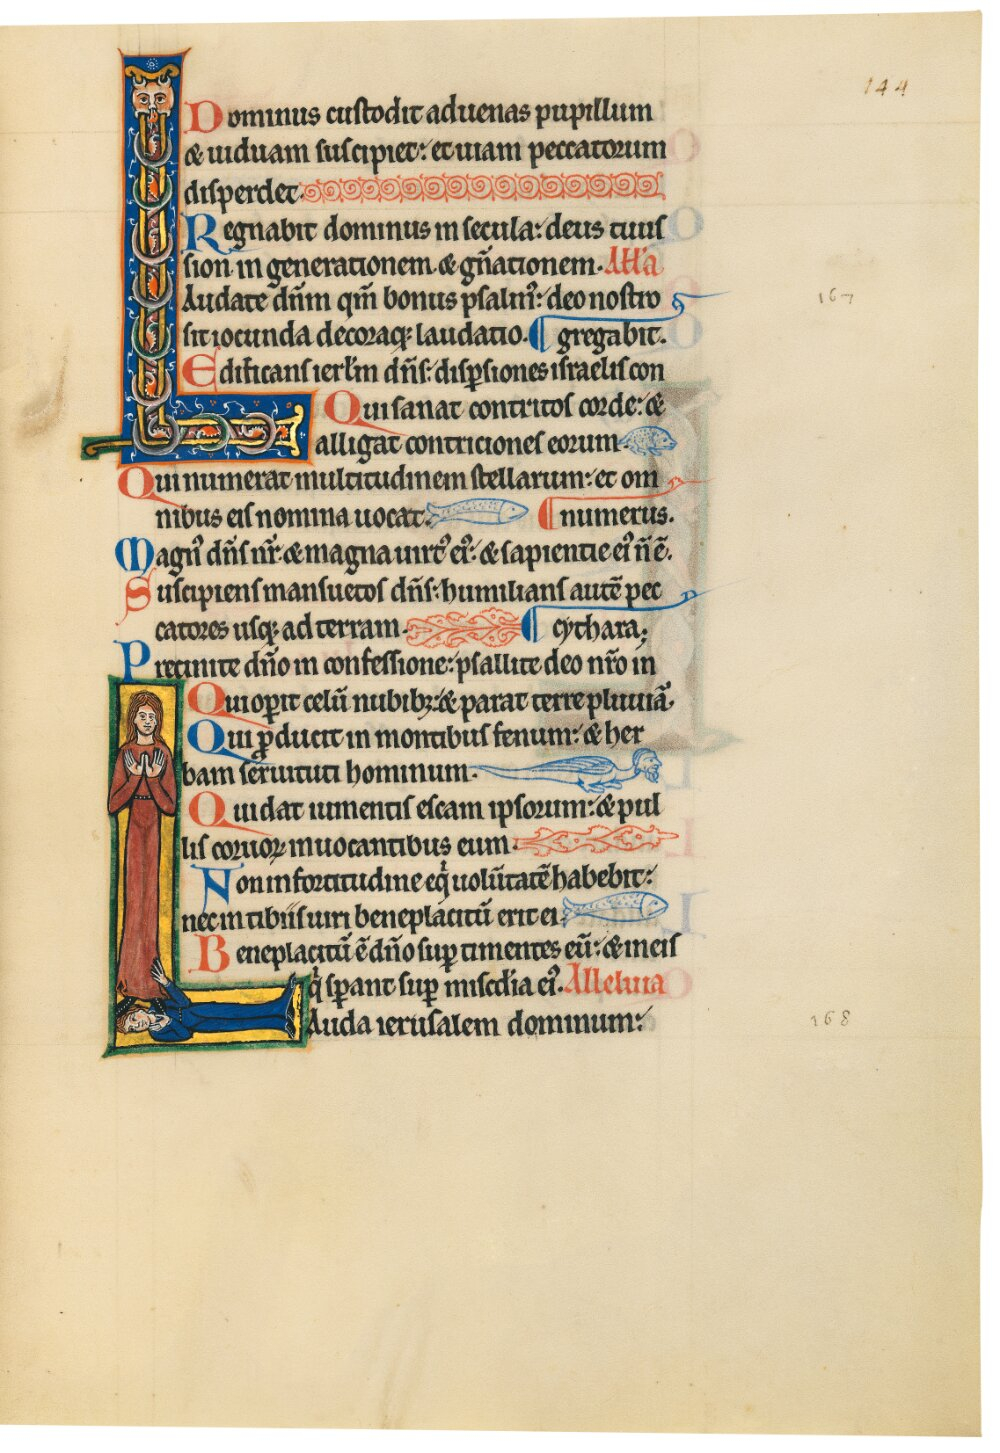 144
Dominus custodit aduenas pupillum
& uiduam suscipiet: et uiam peccatorum
disperdet.
Regnabit dominus in secula: deus tuus
sion in generationem & gn̄ationem. All'a
Laudate dn̄m qm̄ bonus psalm᷒: deo nostro
167
sit iocunda decoraq; laudatio. gregabit.
Edificans ierl'm dn̄s: disp̱siones israelis con
Qui sanat contritos corde: &
alligat contriciones eorum.
Qui numerat multitudinem stellarum: et om
nibus eis nomina uocat. numerus.
Magn᷒ dn̄s nr̄: & magna uirt᷒ ei᷒: & sapientie ei᷒ n̄ ē.
Suscipiens mansuetos dn̄s: humilians autē pec
catores usq; ad terram. cythara;
Precinite dn̄o in confessione: psallite deo nr̄o in
Qui op̱it celū nubibꝫ: & parat terre pluuiā.
Qui ꝓducit in montibus fenum: & her
bam seruituti hominum.
Qui dat iumentis escam ipsorum: & pul
lis coruoꝝ inuocantibus eum.
Non in fortitudine eq̇ uolūtatē habebit:
nec in tibiis uiri beneplacitū erit ei.
Beneplacitū ē dn̄o sup̱ timentes eū: & in eis
q̇ sp̱ant sup̱ mis̄cd̄ia ei᷒. Alleluia
Lauda ierusalem dominum:
168